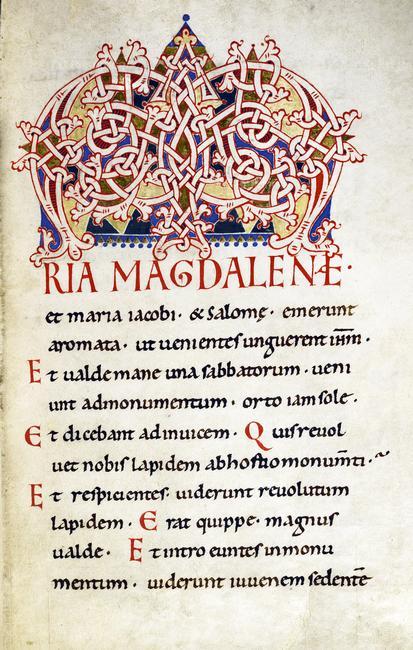 MA
RIA MAGDALENÆ·
et maria iacobi · & Salomę · emerunt
aromata · ut uenientes unguerent iħm̄ ·
Et ualde mane una sabbatorum · ueni
unt admonumentum · orto iam sole ·
Et dicebant adinuicem · Quis reuol
uet nobis lapidem abhostio monum̄ti ·
Et respicientes · uiderunt reuolutum
lapidem · Erat quippe · magnus
ualde · Et intro euntes inmonu
mentum · uiderunt iuuenem sedentē